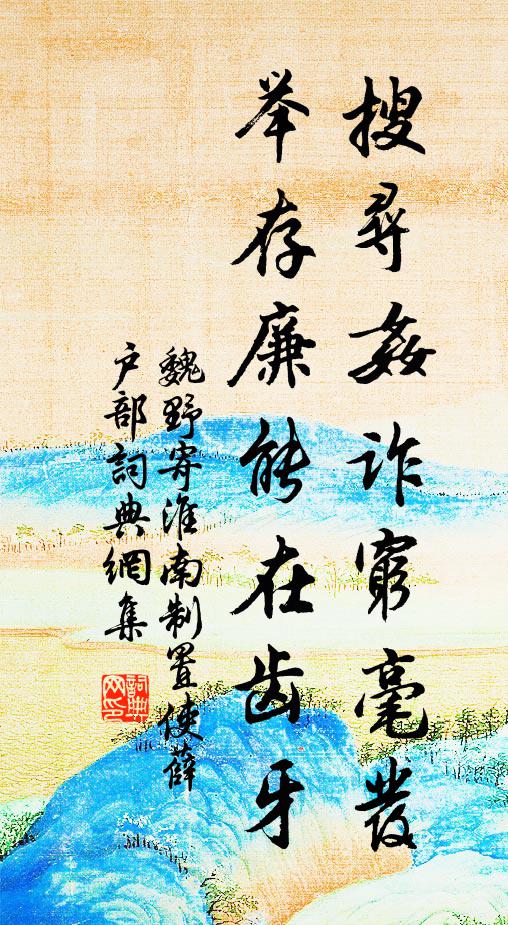 搜尋姦詐窮毫發
举存廉能在齿牙
魏野寄淮南制置使薛
户部詞典網集
詞典网印